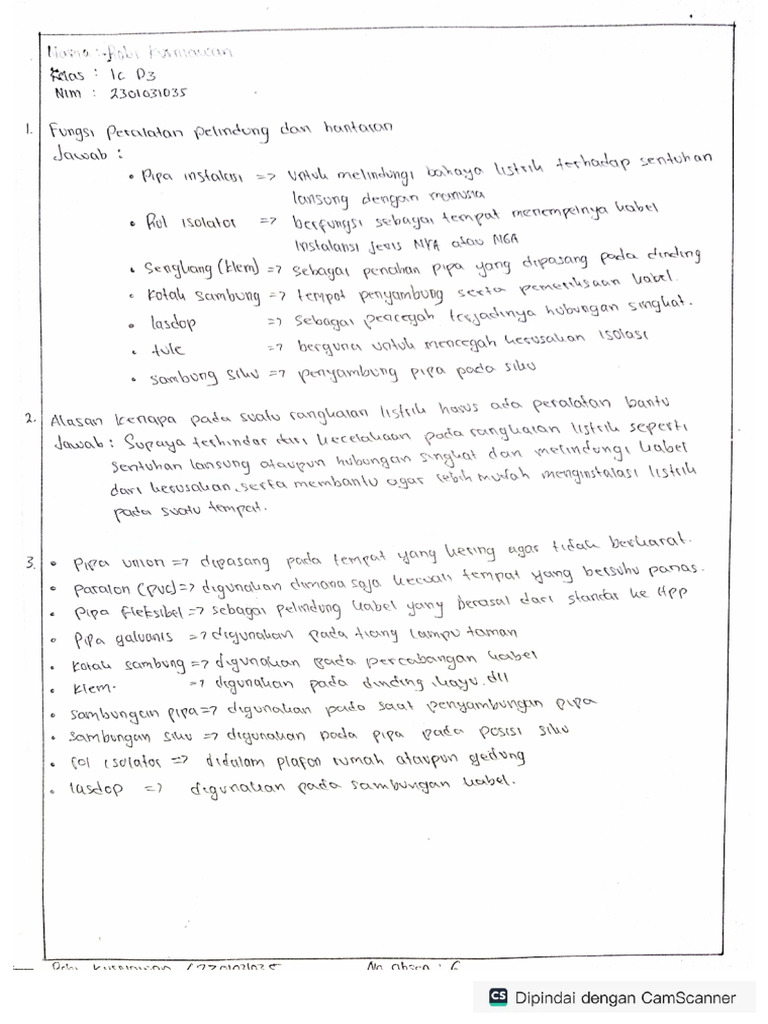 Nama : Robi Kurniawan
Kelas : 1c D3
Nim : 2301031035
1. Fungsi Peralatan pelindung dan hantaran
Jawab :
• Pipa instalasi => Untuk melindungi bahaya listrik terhadap sentuhan
lansung dengan manusia
• Rol isolator => berfungsi sebagai tempat menempelnya kabel
Instalansi jenis NYA atau NGA
• Sengkang (klem) => sebagai penahan pipa yang dipasang pada dinding
• Kotak sambung => tempat penyambung serta pemeriksaan kabel.
• lasdop => sebagai pencegah terjadinya hubungan singkat.
• tule => berguna untuk mencegah kerusakan isolasi
• sambung siku => penyambung pipa pada siku
2. Alasan kenapa pada suatu rangkaian listrik harus ada peralatan bantu
Jawab : Supaya terhindar dari kecelakaan pada rangkaian listrik seperti
sentuhan lansung ataupun hubungan singkat dan melindungi kabel
dari kerusakan, serta membantu agar lebih mudah menginstalasi listrik
pada suatu tempat.
3. • Pipa union => dipasang pada tempat yang kering agar tidak berkarat.
• Paralon (pvc) => digunakan dimana saja kecuali tempat yang bersuhu panas.
• Pipa fleksibel => sebagai pelindung kabel yang berasal dari standar ke HPP
• Pipa galvanis => digunakan pada tiang lampu taman
• Kotak sambung => digunakan pada percabangan kabel
• Klem. => digunakan pada dinding, kayu. dll
• sambungan pipa => digunakan pada saat penyambungan pipa
• sambungan siku => digunakan pada pipa pada posisi siku
• rol isolator => didalam plafon rumah ataupun gedung
• lasdop => digunakan pada sambungan kabel.
Robi Kurniawan / 2301031035 No Absen : 6
CS Dipindai dengan CamScanner